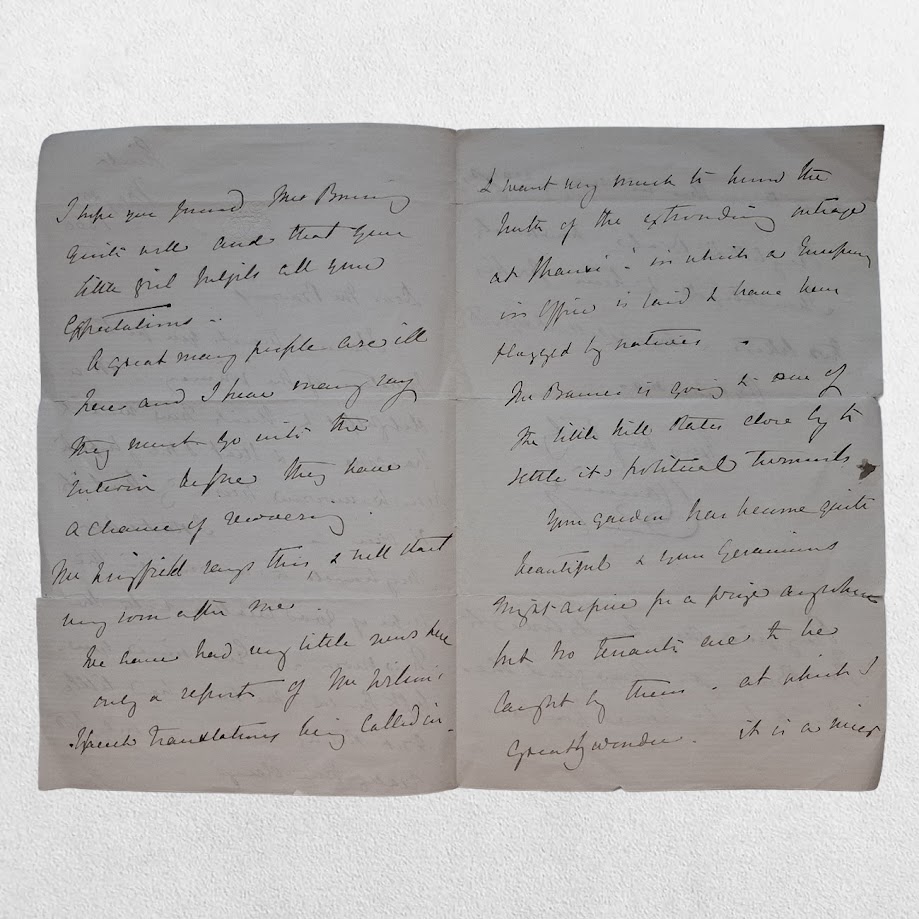 I hope you found Mrs Browning
quite well and that your
little girl fulfils all your
Expectations ..
A great many people are ill
here and I hear many say
they must go into the
interior before they have
a chance of recovering
Mr says this, & will start
very soon after me
We have had very little news here
only a report of Mr
French translations being called in -
I want very much to know the
truth of the outrage
at in which a European
in Office is said to have been
flogged by natives -
Mr Barnes is going to one of
the little hill States close by to
settle its political turmoils
Your garden has become quite
beautiful & your Geraniums
might aspire for a prize anywhere
but no tenants are to be
caught by them - at which I
Greatly wonder - it is a nice